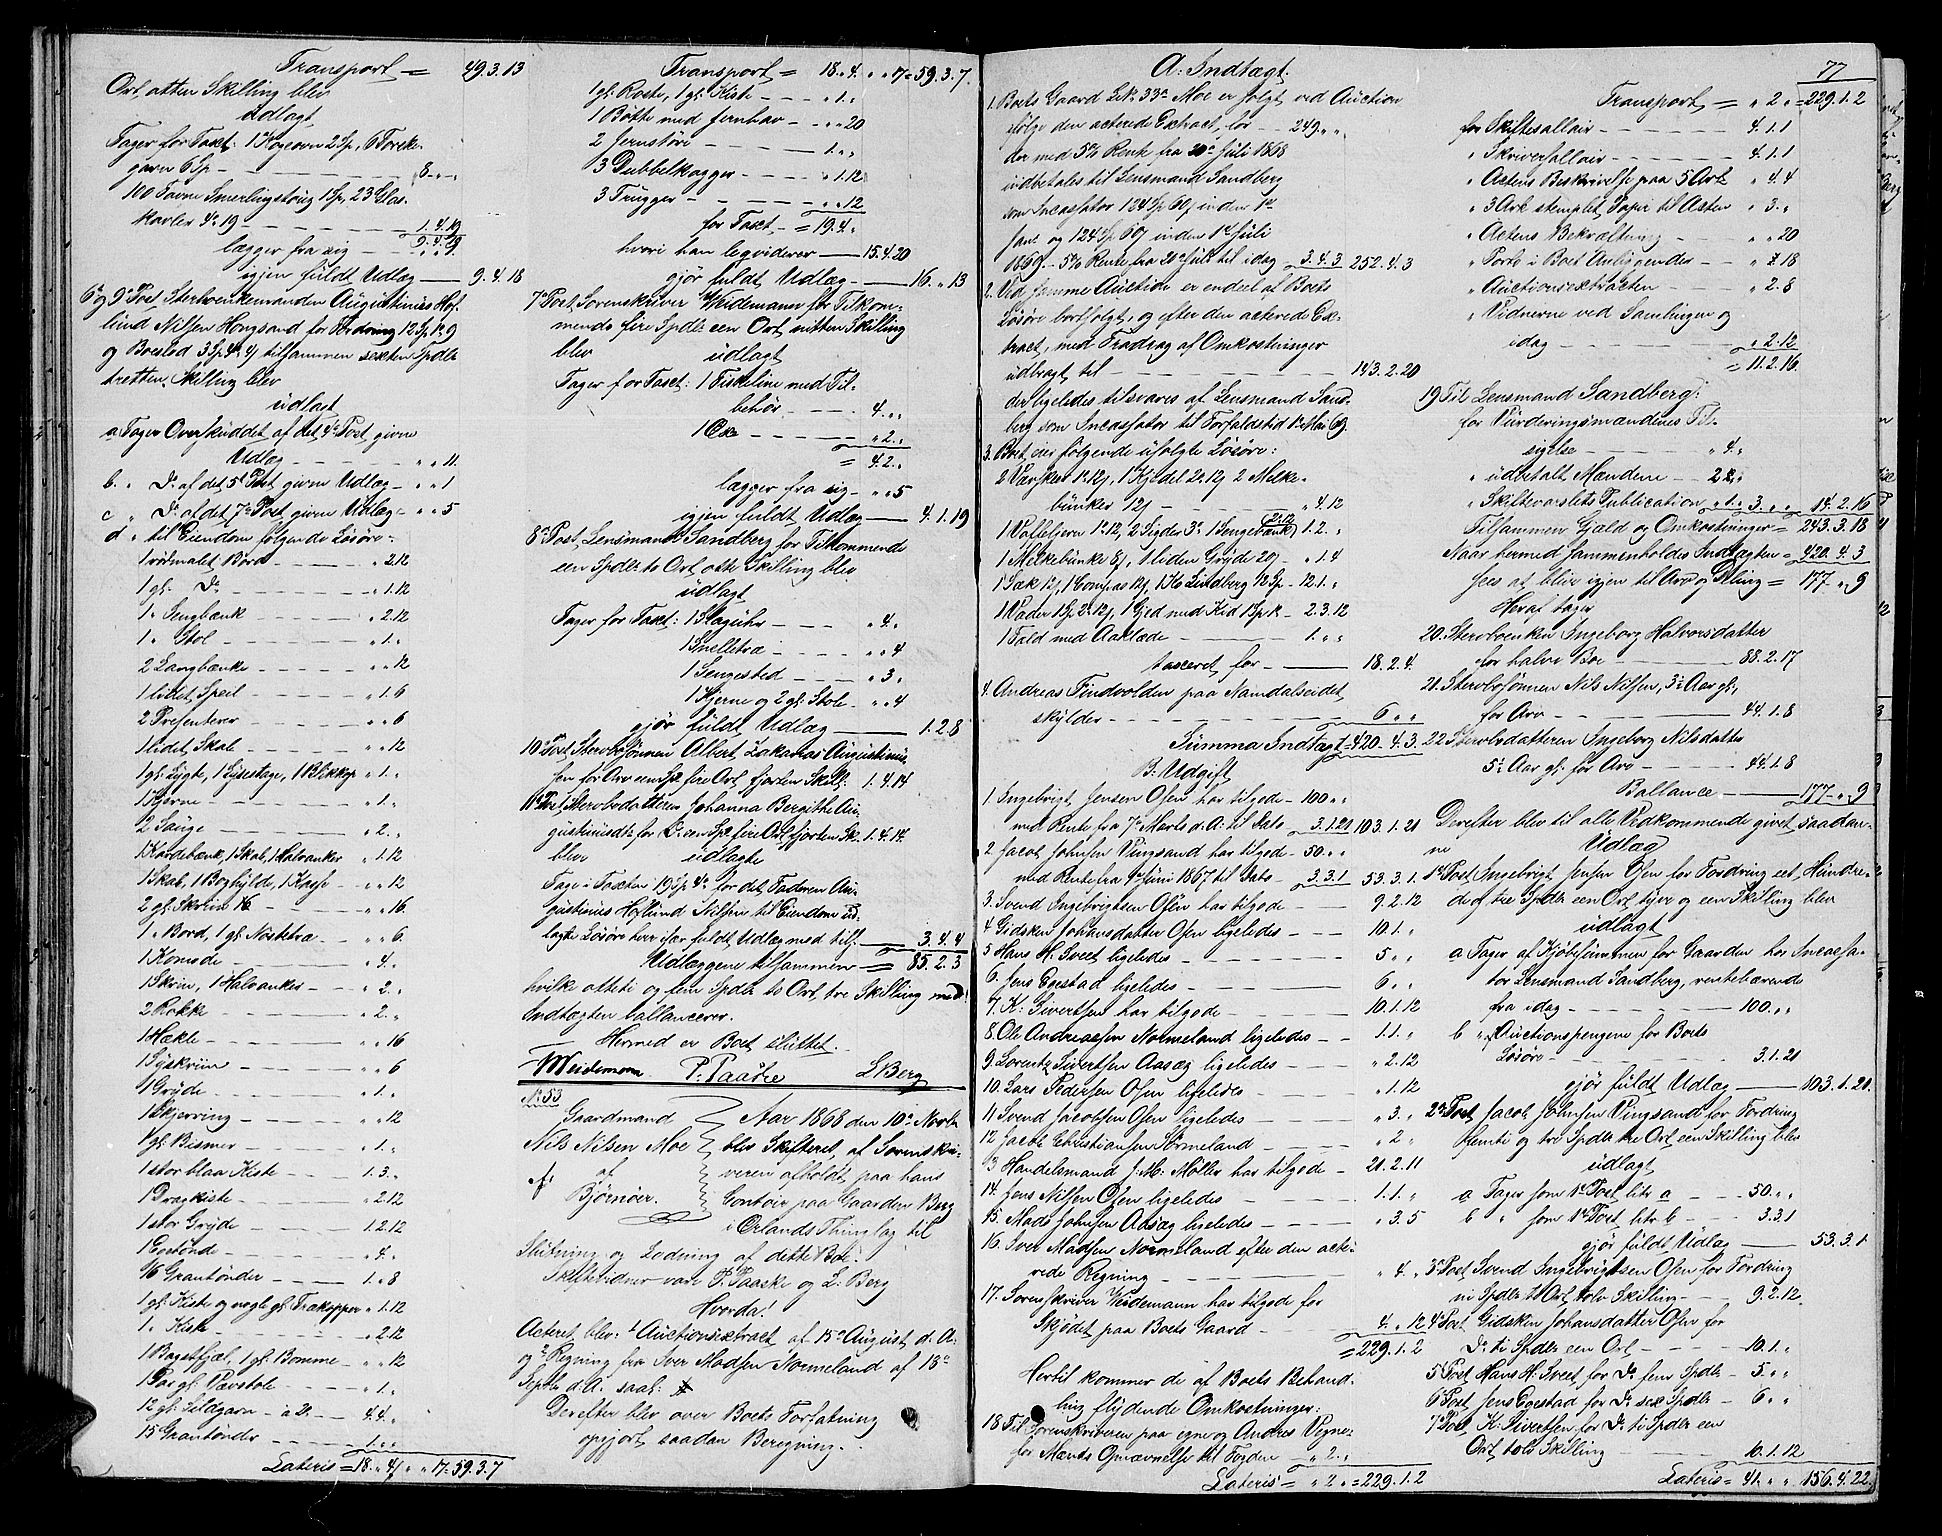 Transport = 49.3.13
Ort, otten Skilling blev
udlagt
Tager for Taxt: 1 Kogeovn 2 Sp, 6 Torske-
garn 6 Sp - 8 „ „
100 Favne Snerlingstoug 1 Sp, 23 Glas-
kavler 4. 19 - 1.4.19
9.4.19
lægger fra sig - „ „
igjen fuldt Udlæg - 9.4.18
6 og 9de Post Stervboenkemanden Augustinus Høf-
lund Nilsen Hongsand for Fordring 12 Sp 1. 9
og Boeslod 3 Sp 4. 4 tilsammen sexten Spdlr
tretten Skilling blev
udlagt
a. Tager Overskuddet af det 4de Post givne
Udlæg - „ „ 11.
b. „ Do af det 5te Post givne Udlæg - „ „ 1
c „ Do af det 7de Post givne Udlæg - „ „ 5
d „ til Eiendom følgende Løsøre:
1 rødmalet Bord - „ 2.12
1 gl. Do - „ 1.12
1 „ Sengbænk - „ 2.12
1 „ Stol - „ 1. „
2 Langbænke - „ „ 12
1 lidet Speil - „ 1.6
2 Presenterer - „ „ 6
1 lidet Skab - „ „ 12
1 gl. Lygte, 1 Lysestage, 1 Blikkop „ 1. „
1 Kjerne - „ 1. „
2 Sauge - „ 2. „
1 Kardebænk, 1 Skab, 1 Halvanker „ 1.12
1 Skab, 1 Boghylde, 1 Kasse - „ „ 12
2 gl. Skrin - „ „ 16.
1 „ Bord, 1 gl. Nøstetræ - „ „ 6.
1 Komode - „ 4. „
1 Skrin, 1 Halvanker - „ 2. „
2 Rokke - „ 2. „
1 Hækle - „ „ 16
1 Syskrin - „ „ 6
1 Gryde - „ 1. „
1 Skjerring - „ „ 12
1 gl. Bismer - „ 1. „
1 stor blaa Kiste - „ 3. „
1 Dragkiste - „ 2.12
1 stor Gryde - 1.2.12
1 - „ 4. „
16 Grantønder - 1. „ 8
1 gl. Kiste og nogle gl. Trækopper „ 1.12
1 „ Kiste - „ 2.12
1 Bagstfjæl, 1 gl. Bomme - „ „ 12
1 Par gl. Vævstole - „ 1. „
12 gl. Sildgarn - a 2. - 4.4. „
15 Grantønder - 1. „ „
Lateris = 18. „ 4 „ „ 17 = 59.3.7
Transport = 18. 4. „ „ 17 = 59.3.7.
1 gl. Kiste, 1 gl. Kiste - „ 1. „
1 Bøtte med Jernhav - „ „ 20
2 Jernstør - „ 1. „
3 Dubbelkagger - „ 1.12
3 Trugger - „ „ 12
for Taxt - = 19.4. „
hvori han leqviderer - 15.4.20
gjør fuldt Udlæg - 16. „ 13
7de Post, Sorenskriver Weidemann for Tilkom-
mende fire Spdlr een Ort nitten Skilling
blev udlagt
Tager for Taxt: 1 Fiskeline med Til-
behør - 4. „ „
1 Øxe - „ 2. „
= 4.2. „
lægger fra sig - „ „ 5
igjen fuldt Udlæg - 4.1.19
8de Post, Lensmand Sandberg for Tilkommende
een Spdlr to Ort, otte Skilling blev
udlagt
Tager for Taxt: 1 Slaguhr - „ 4. „
1 Snelletræ - „ „ 4
1 Sengested - „ 3. „
1 Kjerne og 2 gl. Stole - „ „ 4
gjør fuldt Udlæg - 1.2.8
10 Post, Stervbosønnen Albert Zakarias Augustinus-
sen for Arv een Spd fire Ort fjorten Skill: 1.4.14
11te Post, Stervbodatteren Johanna Bergithe Au-
gustinusdtr for Do een Spd fire Ort fjorten Sk. 1.4.14.
blev udlagte
Tage i Taxten 19 Sp 4. for det Faderen Au-
gustinus Høflund Nilsen til Eiendom ud-
lagte Løsøre hver især fuldt Udlæg med tils. - 3.4.4
Udlæggene tilsammen = 85.2.3
hvilke otteti og fem Spdlr to Ort, tre Skilling med
Indtægten ballancerer.
Hermed er Boet sluttet.
Weidemann P. Paaske L Berg
No 53
Gaardmand
Nils Nilsen Moe
af
Bjørnøer.
Aar 1868 den 10de Novbr
blev Skifteret, af Sorenskri-
veren afholdt paa hans
Contoir paa Gaarden Berg
i Ørlands Thinglag til
Slutning og Lodning af dette Boe.
Skiftevidner vare P. Paaske og L. Berg
Hvorda!
Acteret blev: 1 Auctionsextract af 15de August d. A.
og 2 Regning fra Iver Madsen Normeland af 18de
Septbr d. A. saal:
Derefter blev over Boets Forfatning
opgjort saadan Beregning.
77
A. Indtægt.
1. Boets Gaard L.N. 33a Moe er solgt ved Auction
ifølge den acterede Extract, for - 249. „ „
der med 5% Rente fra 20de Juli 1868
indbetales til Lensmand Sandberg
som Incassator 124 Sp 60 inden 1ste
Janr og 124 Sp 60 inden 1ste Juli
1869 - 5% Rente fra 20de Juli til idag - 3.4.3 252.4.3
2. Ved samme Auction er endeel af Boets
Løsøre bortsolgt, og efter den acterede Ex-
tract, med Fradrag af Omkostninger
udbragt til - 143.2.20
der ligeledes tilsvares af Lensmand Sand-
berg som Incassator til Forfaldstid 1ste Mai 69.
3. Boet eier følgende usolgte Løsøre:
2 Vævskeer 1. 12, 1 Kjedel 2. 12, 2 Melke-
bunker 12 - „ 4.12
1 Vaffeljern 1. 12, 2 Sigder 3. 1 Sengebænk 2.12 1.2. „
1 Melkebunke 8, 1 liden Gryde 20 - „ 1.4
1 Sæk 12, 1 Compas 12, 1 Ko Lindberg 12 Sp - 12.1. „
1 Væder 1 Sp 2. 12, 1 Gjed med Kid 1 Sp - 2.3.12
1 Fæld med Aaklæde - 1. „ „
taxeret for - 18.2.4.
4. Andreas Findvolden paa Namdalseidet,
skylder - 6 „ „
Summa Indtægt = 420.4.3.
B. Udgift
1. Ingebrigt Jensen Osen har tilgode - 100 „ „
med Rente fra 7de Marts d. A. til Dato - 3.1.21 103.1.21
2. Jacob Johnsen Vingsand har tilgode - 50. „ „
med Rente fra 1ste Juni 1867 til Dato - 3.3.1 53.3.1.
3. Svend Ingebrigtsen Osen har tilgode - 9.2.12
4 Gidsken Johansdatter Osen ligeledes - 10.1. „
5 Hans H. Sveet ligeledes - 5 „ „
6. Jens Egestad ligeledes - 6 „ „
7. K. Sivertsen har tilgode - 10.1.12
8. Ole Andreassen Normeland ligeledes - 1.1. „
9. Lorents Sivertsen Aasæg ligeledes - „ 2.12
10. Lars Pedersen Osen ligeledes - „ 1.12
11 Svend Jacobsen Osen ligeledes - „ 3. „
12 Jacob Christiansen Sørmeland - „ 2 „
13 Handelsmand J. M. Møller har tilgode - 21.2.11
14. Jens Nilsen Osen ligeledes - 1.1. „
15. Mads Johnsen Aasæg ligeledes - „ 3.5
16. Iver Madsen Normeland efter den acte-
rede Regning - „ 4. „
17. Sorenskriver Weidemann har tilgode for
Skjødet paa Boets Gaard - 4. „ 12
= 229.1.2
Hertil kommer de af Boets Behand-
ling flydende Omkostninger:
18 Til Sorenskriveren paa egne og Andres Vegne:
for Mænds Opnævnelse til Fogden „ 2. „
Lateris = „ 2 „ = 229.1.2
Transport = „ 2 „ = 229.1.2
for Skiftesallair - 4.1.1
„ Skriversallair - 4.1.1
„ Actens Beskrivelse paa 5 Ark „ 4.4
„ 3 Ark stemplet Papir til Acten „ 3. „
„ Actens Bekræftning - „ „ 20
„ Porto i Boet Anliggendes - „ 2 18
„ Auctionsextracten - „ 2.8
„ Vidnerne ved Samlingen og
idag - „ 2.12
= 11.2.16.
19 Til Lensmand Sandberg:
for Vurderingsmændenes Til-
sigelse - „ 4. „
„ udbetalt Mændene - 2 „ „
„ Skiftevarslets Publication „ 1. „ 3. „ „ 14.2.16
Tilsammen Gjæld og Omkostninger = 243.3.18
Naar hermed sammenholdes Indtægten = 420.4.3
sees at blive igjen til Arv og Deling = 177. „ 9
Heraf tager
20. Stervboenken Ingeborg Halvorsdatter
for halve Boe - 88.2.17
21. Stervbosønnen Nils Nilsen, 3½ Aar gl.,
for Arv - 44.1.8
22 Stervbodatteren Ingeborg Nilsdatter
5½ Aar gl. for Arv - 44.1.8
Ballance - 177. „ 9
Derefter blev til alle Vedkommende givet saadan-
ne Udlæg
1ste Post, Ingebrigt Jensen Osen for Fordring eet Hundre-
de og tre Spdlr een Ort tyve og een Skilling blev
udlagt
a Tager af Kjøbesummen for Gaarden hos Incassa-
tor Lensmand Sandberg, rentebærende
fra idag - 100. „ „
b „ af Auctionspengene for Boets
Løsøre - 3.1.21
gjør fuldt Udlæg - 103.1.21.
2den Post, Jacob Johnsen Vingsand for Fordring
femti og tre Spdlr tre Ort een Skilling blev
udlagt
a Tager som 1ste Post litr a - 50. „ „
b „ som 1ste Post, litr. b - 3.3.1
gjør fuldt Udlæg - 53.3.1
3de Post Svend Ingebrigtsen Osen for Fordring
ni Spdlr to Ort tolv Skilling - 9.2.12.
4de Post Gidsken Johansdatter Osen for
Do ti Spdlr een Ort - 10.1. „
5te Post Hans H. Sveet for Do fem Spdlr - 5. „ „
6te Post, Jens Egestad for Do sex Spdlr - 6 „ „
7de Post, K. Sivertsen for Do ti Spdlr een
Ort tolv Skilling - 10.1.12
Lateris = 41. „ „ 156.4.22